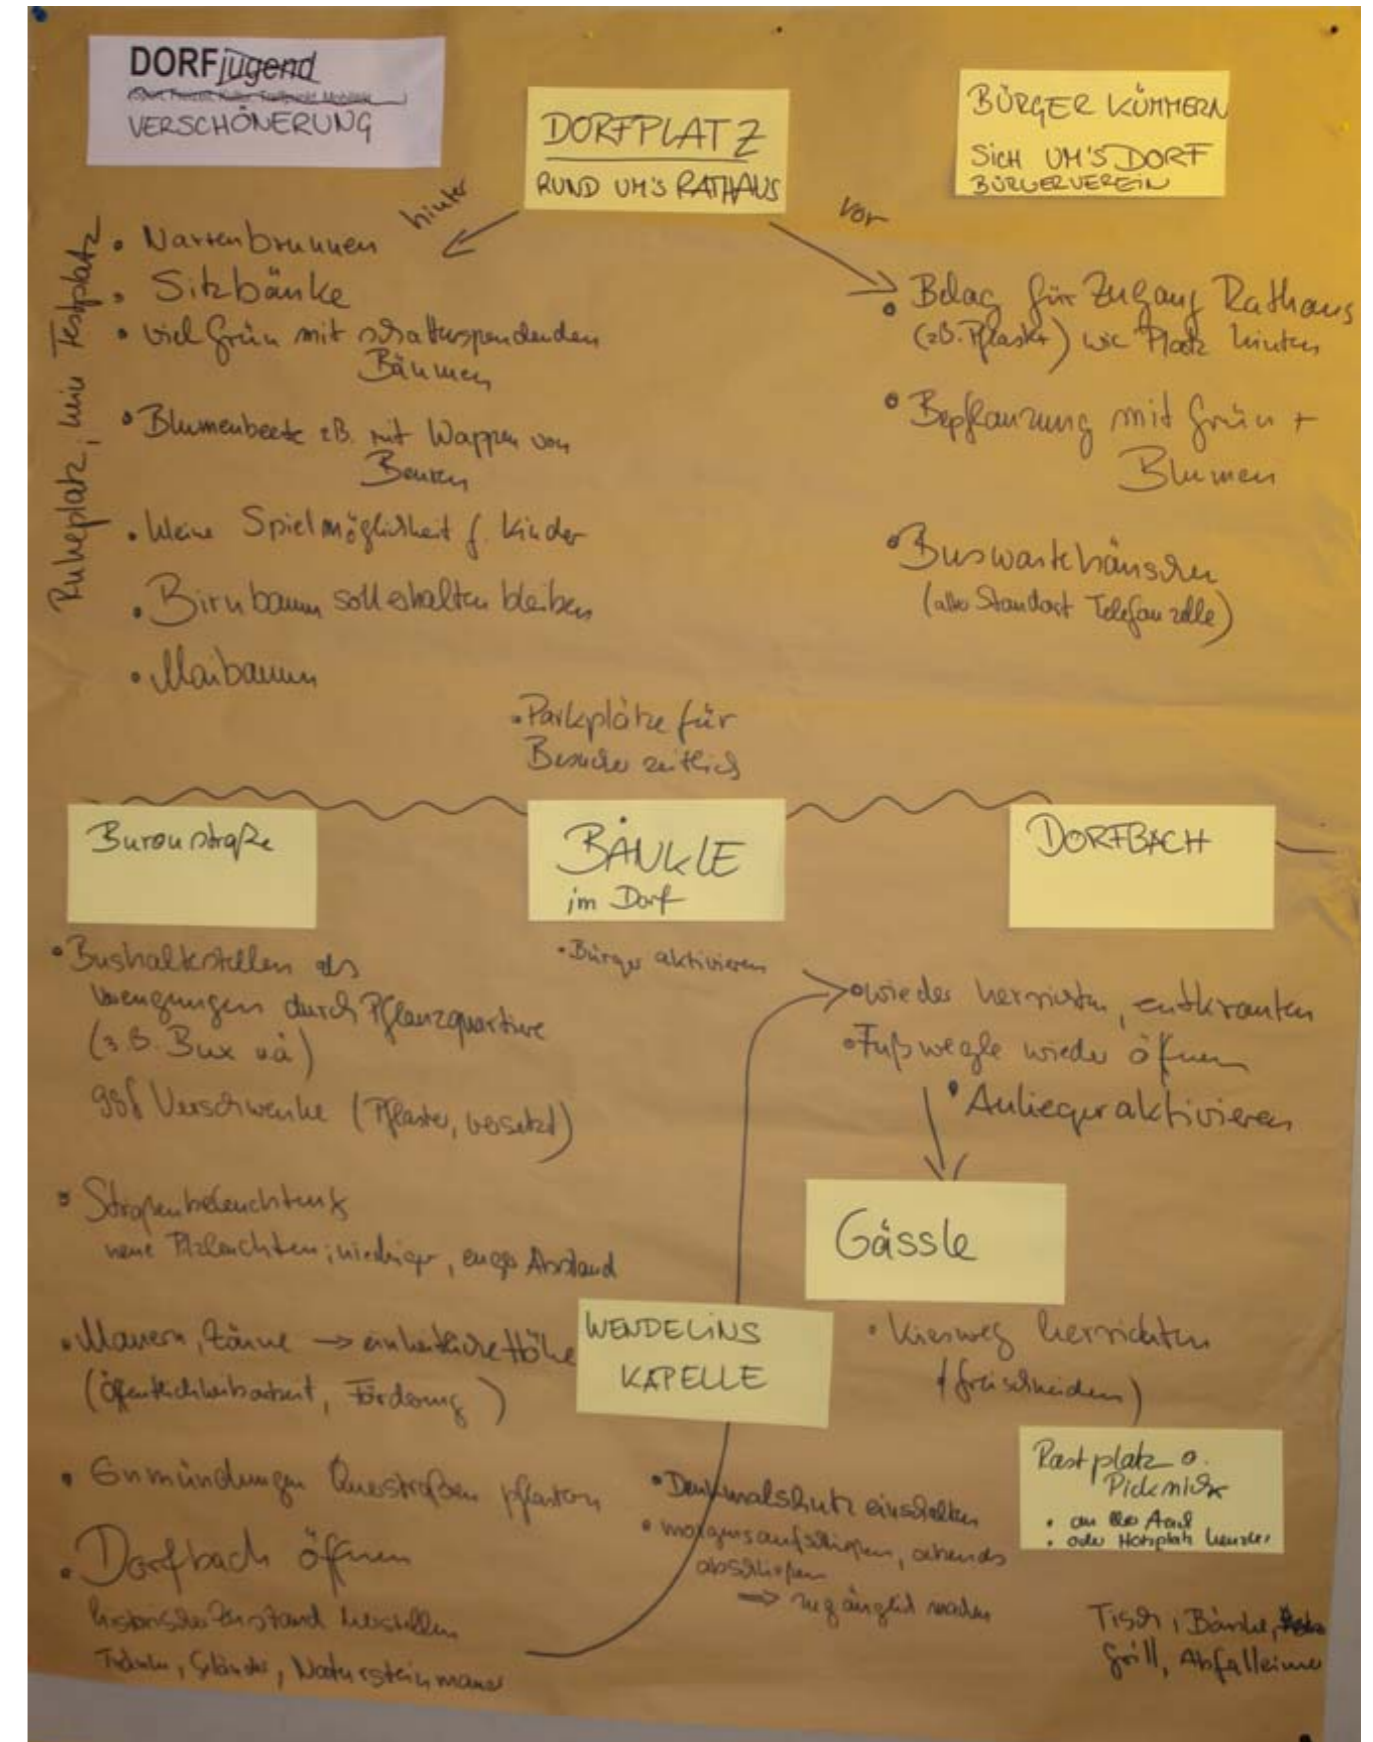 DORFjugend
VERSCHÖNERUNG
DORFPLATZ
RUND UM'S RATHAUS
BÜRGER KÜMMERN
SICH UM'S DORF
BÜRGERVEREIN
hinter
vor
Ruheplatz, kein Festplatz
• Narrenbrunnen
• Sitzbänke
• viel Grün mit schattenspendenden
Bäumen
• Blumenbeete zB. mit Wappen von
Beuren
• kleine Spielmöglichkeit f. Kinder
• Birnbaum soll erhalten bleiben
• Maibaum
• Belag für Zugang Rathaus
(zB. Pflaster) wie Platz hinten
• Bepflanzung mit Grün +
Blumen
• Buswartehäuschen
(alter Standort Telefonzelle)
• Parkplätze für
Besucher zeitlich
Burenstraße
BÄNKLE
im Dorf
DORFBACH
• Bushaltestellen als
Verengungen durch Pflanzquartiere
(z.B. Bux uä)
ggf Verschwenke (Pflaster, versetzt)
• Straßenbeleuchtung
neue Pilzleuchten; niedriger, enger Abstand
• Mauern, Zäune → einheitliche Höhe
(Öffentlichkeitsarbeit, Förderung)
• Einmündungen Querstraßen pflastern
• Dorfbach öffnen
historischer Zustand herstellen
Tränke, Geländer, Natursteinmauer
• Bürger aktivieren
• wieder herrichten, entkrauten
• Fußwegle wieder öffnen
• Anlieger aktivieren
Gässle
• Kiesweg herrichten
(freischneiden)
WENDELINS
KAPELLE
• Denkmalschutz einschalten
• morgens aufschließen, abends
abschließen
⇒ zugänglich machen
Rastplatz o.
Picknick
• an der Aach
• oder Holzplatz
Tisch, Bänke,
Grill, Abfalleimer